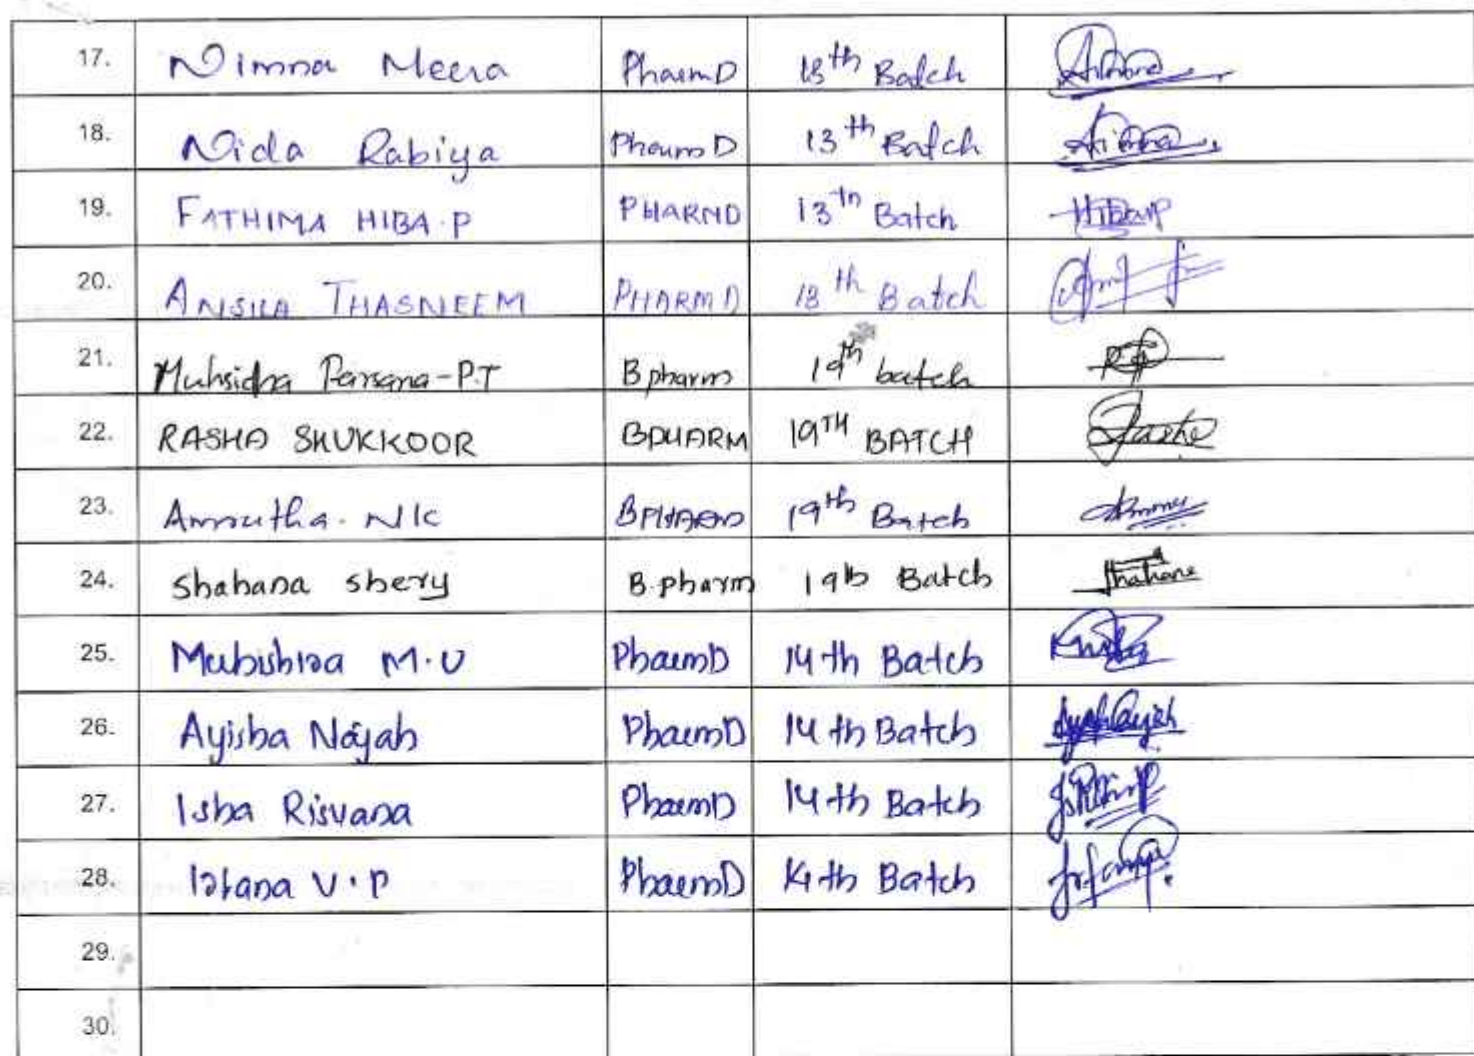 17. Nimna Meera PharmD 13th Batch
18. Nida Rabiya PharmD 13th Batch
19. FATHIMA HIBA.P PHARMD 13th Batch
20. ANSILA THASNEEM PHARM D 13th Batch
21. Muhsidha Farsana-P.T B pharm 19th batch
22. RASHA SHUKKOOR BPHARM 19TH BATCH
23. Amrutha. NK BPHARM 19th Batch
24. Shahana shery B.pharm 19th Batch
25. Mubshira M.U PharmD 14th Batch
26. Ayisha Nayah PharmD 14th Batch
27. Isha Risvana PharmD 14th Batch
28. Irfana V.P PharmD 14th Batch
29.
30.